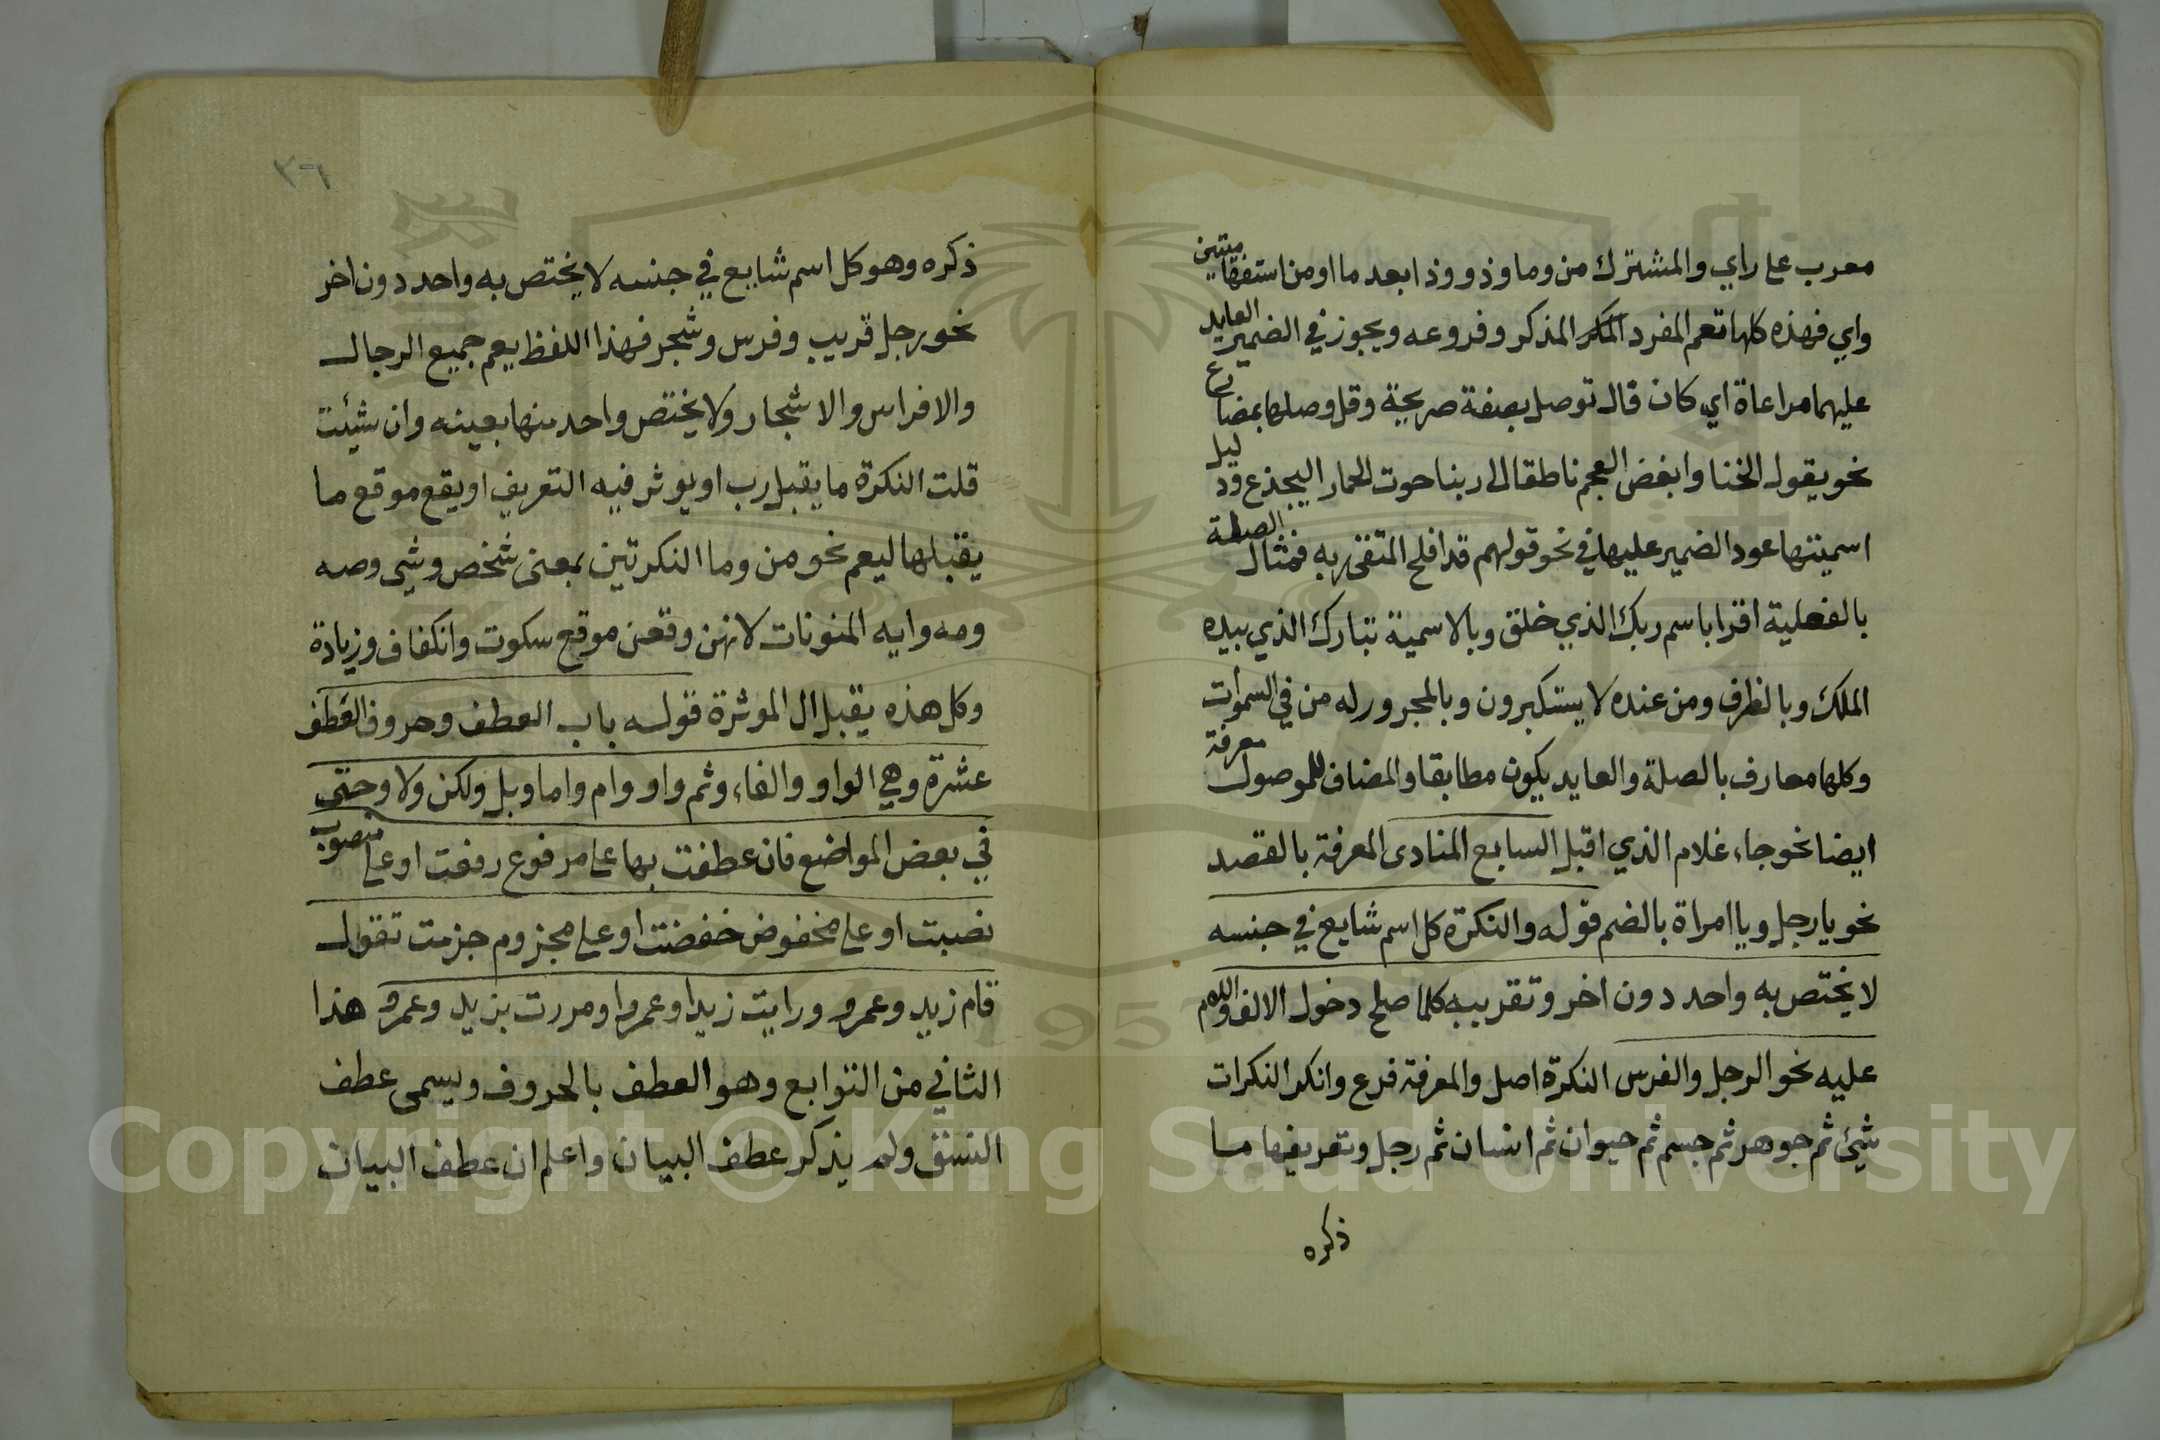 معرب على راي والمشترك من وما وذو وذا بعد ما او من استفهاميتين
واي فهذه كلها تعم المفرد المذكر وفروعه ويجوز في الضمير العايد
عليهما مراعاة اي كان قال توصل بصفة صريحة وقل وصلها بمضارع
نحو يقول الخنا وابغض العجم ناطقا الى ربنا صوت الحمار اليجدع ودليل
اسميتها عود الضمير عليها في نحو قولهم قد افلح المتقي ربه فمثال الصلة
بالفعلية اقرا باسم ربك الذي خلق وبالاسمية تبارك الذي بيده
الملك وبالظرف ومن عنده لا يستكبرون وبالمجرور له من في السموات
وكلها معارف بالصلة والعايد يكون مطابقا والمضاف للموصول معرفة
ايضا نحو جاء غلام الذي اقبل السابع المنادى المعرفة بالقصد
نحو يا رجل ويا امراة بالضم قوله والنكرة كل اسم شايع في جنسه
لا يختص به واحد دون اخر وتقريبه كلما صلح دخول الالف واللام
عليه نحو الرجل والفرس النكرة اصل والمعرفة فرع وانكر النكرات
شيئ ثم جوهر ثم جسم ثم حيوان ثم انسان ثم رجل وتعريفها ما
ذكره
٣٦
ذكره وهو كل اسم شايع في جنسه لا يختص به واحد دون اخر
نحو رجل قريب وفرس وشجر فهذا اللفظ يعم جميع الرجال
والافراس والاشجار ولا يختص واحد منها بعينه وان شيئت
قلت النكرة ما يقبل رب او يوثر فيه التعريف او يقع موقع ما
يقبلها ليعم نحو من وما النكرتين بمعنى شخص وشي وصه
ومه وايه المنونات لانهن وقعن موقع سكوت وانكفاف وزيادة
وكل هذه يقبل ال الموثرة قوله باب العطف وحروف العطف
عشرة وهي الواو والفاء وثم واو وام واما وبل ولكن ولا وحتى
في بعض المواضع فان عطفت بها على مرفوع رفعت او على منصوب
نصبت او على مخفوض خفضت او على مجزوم جزمت تقول
قام زيد وعمرو ورايت زيدا وعمروا ومررت بزيد وعمرو هذا
الثاني من التوابع وهو العطف بالحروف ويسمى عطف
النسق ولم يذكر عطف البيان واعلم ان عطف البيان
Copyright © King Saud University
1957